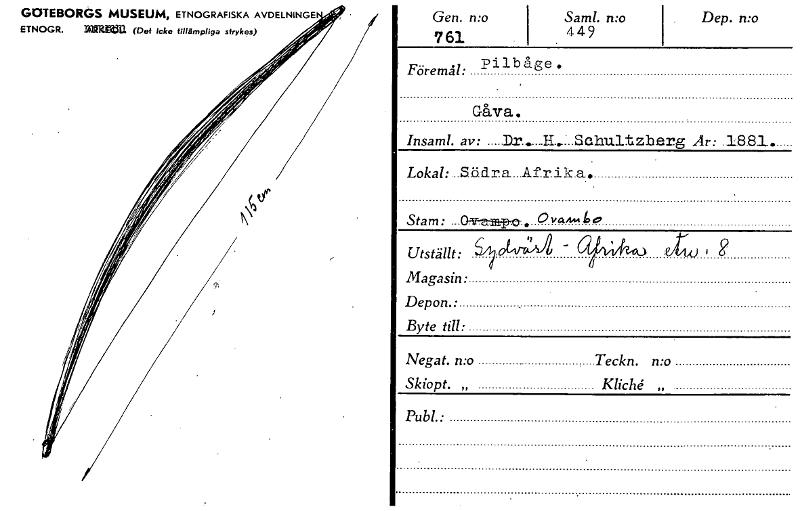 GÖTEBORGS MUSEUM, ETNOGRAFISKA AVDELNINGEN
ETNOGR. (Det icke tillämpliga strykes)
115 cm
Gen. n:o Saml. n:o Dep. n:o
761 449
Föremål: Pilbåge.
Gåva.
Insaml. av: Dr. H. Schultzberg År: 1881.
Lokal: Södra Afrika.
Stam: Ovampo. Ovambo
Utställt: Sydväst-Afrika etn. 8
Magasin:
Depon.:
Byte till:
Negat. n:o Teckn. n:o
Skiopt. „ Kliché „
Publ.: